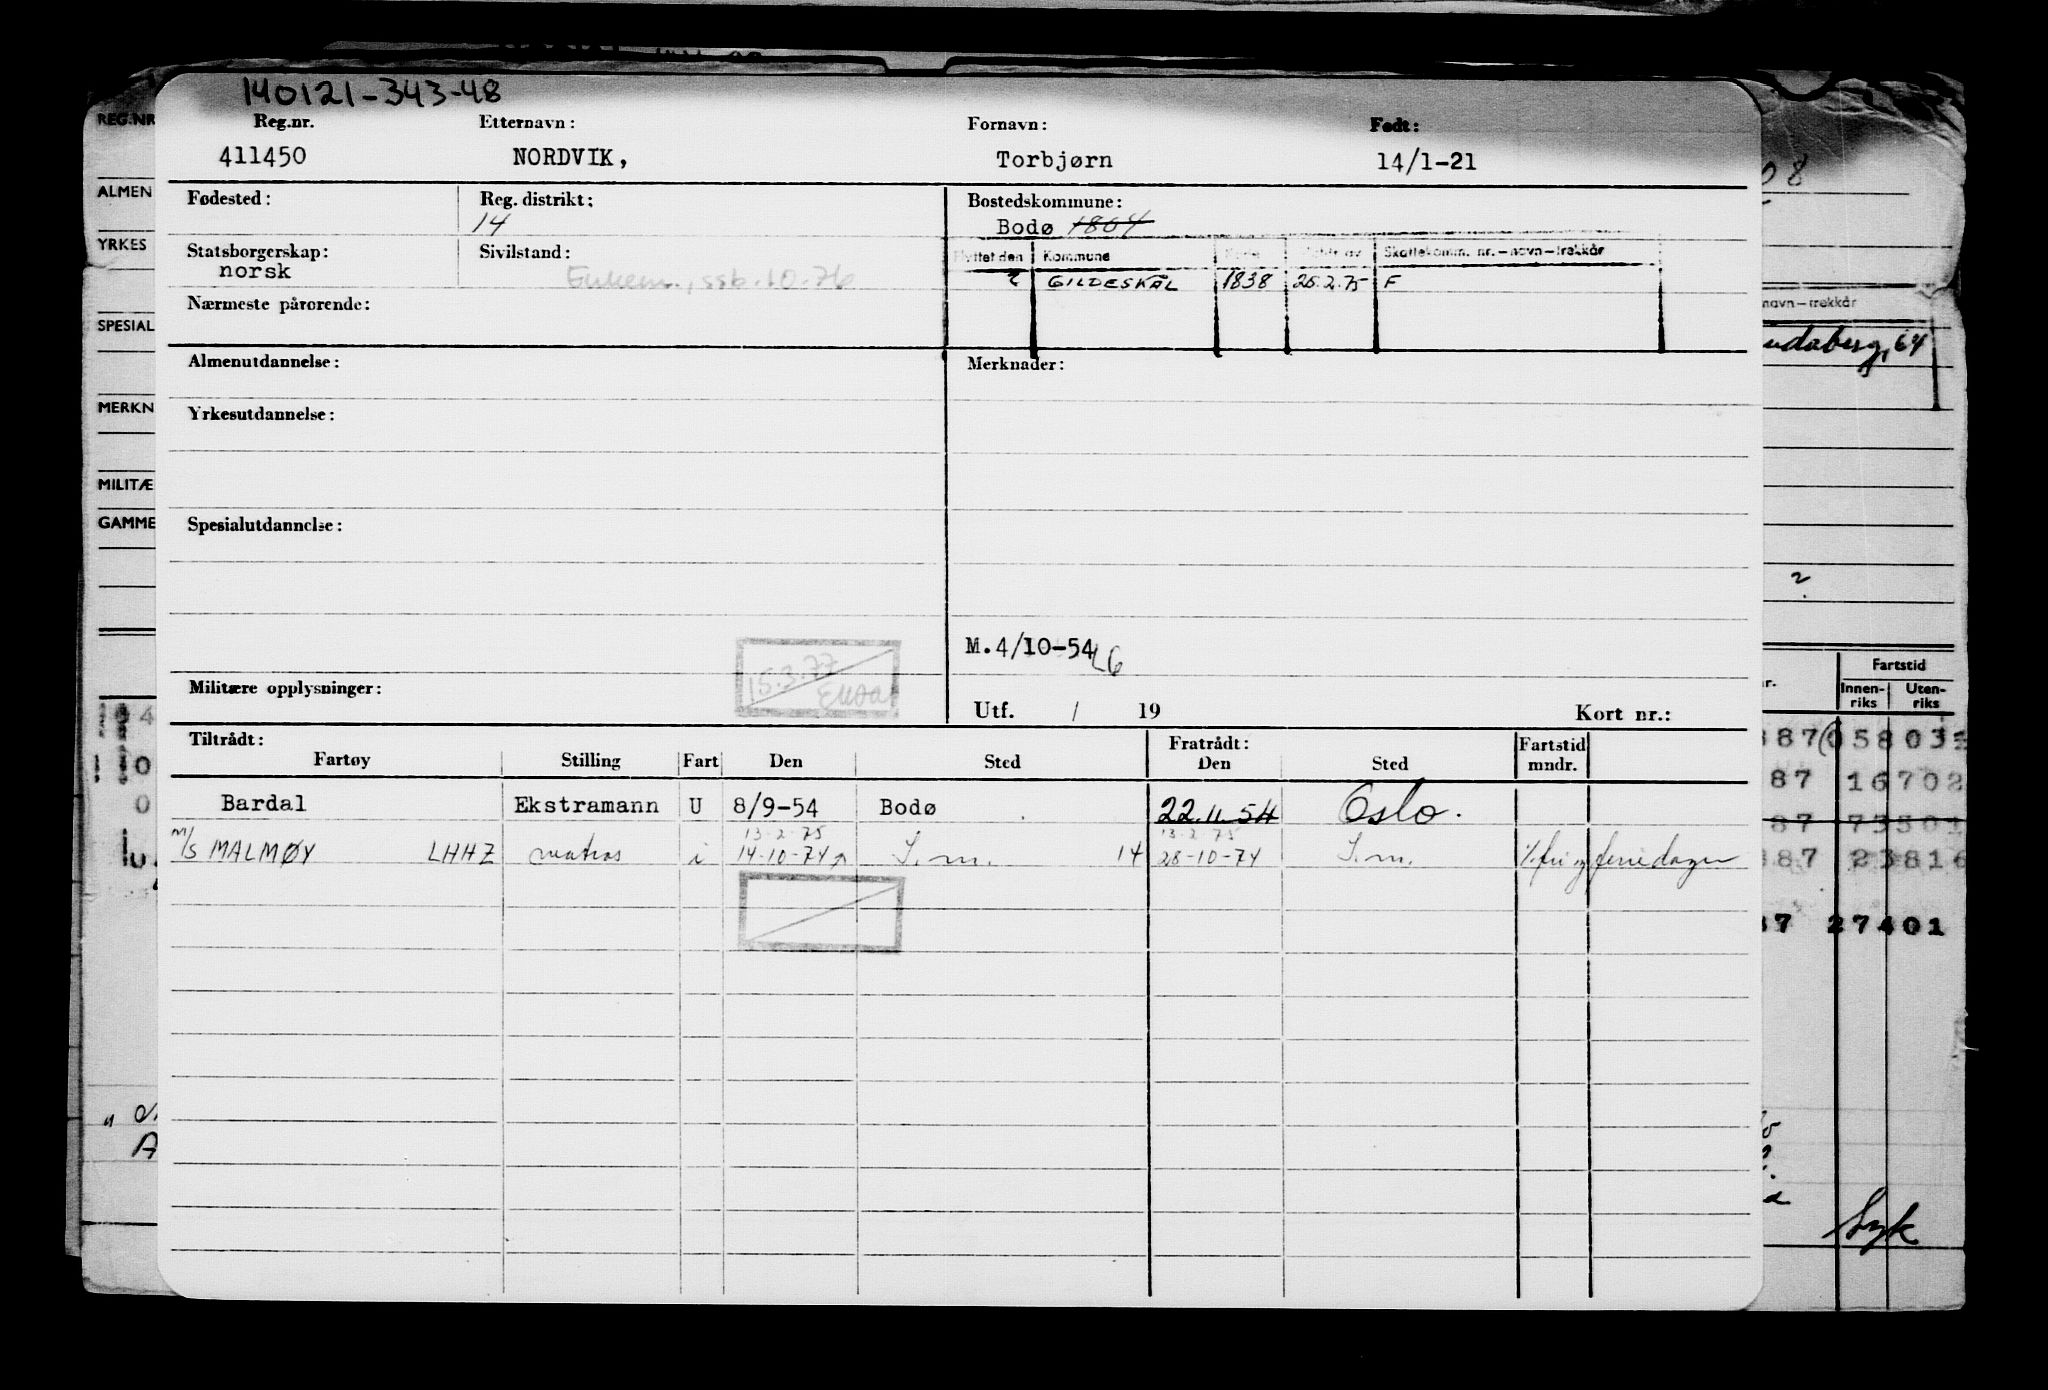 140121-343-48
REG.NR Reg.nr. Etternavn: Fornavn: Født:
411450 NORDVIK, Torbjørn 14/1-21
08
ALMEN Fødested: Reg. distrikt: Bostedskommune:
14 Bodø 1804
YRKES Statsborgerskap: Sivilstand: Flyttet den Kommune Skattekomm. nr.-navn-trekkår
norsk ssb. 10.76 GILDESKÅL 1838 F
Nærmeste pårørende: navn-trekkår
SPESIAL
64
Almenutdannelse: Merknader:
MERKN Yrkesutdannelse:
MILITÆ
GAMME Spesialutdannelse:
?
M.4/10-54
15.3.77
Militære opplysninger: Utf. / 19 Kort nr.:
Fartstid
Innen-riks Uten-riks
Tiltrådt: Fratrådt: Fartstid mndr.
Fartøy Stilling Fart Den Sted Den Sted
Bardal Ekstramann U 8/9-54 Bodø 22.11.54 Oslo.
13-2-75 13-2-75
M/S MALMØY LHHZ matros i 14-10-74 S.m. 14 28-10-74 S.m. % fri og feriedager
87 16702
87 73501
87 23816
87 27401
Syk